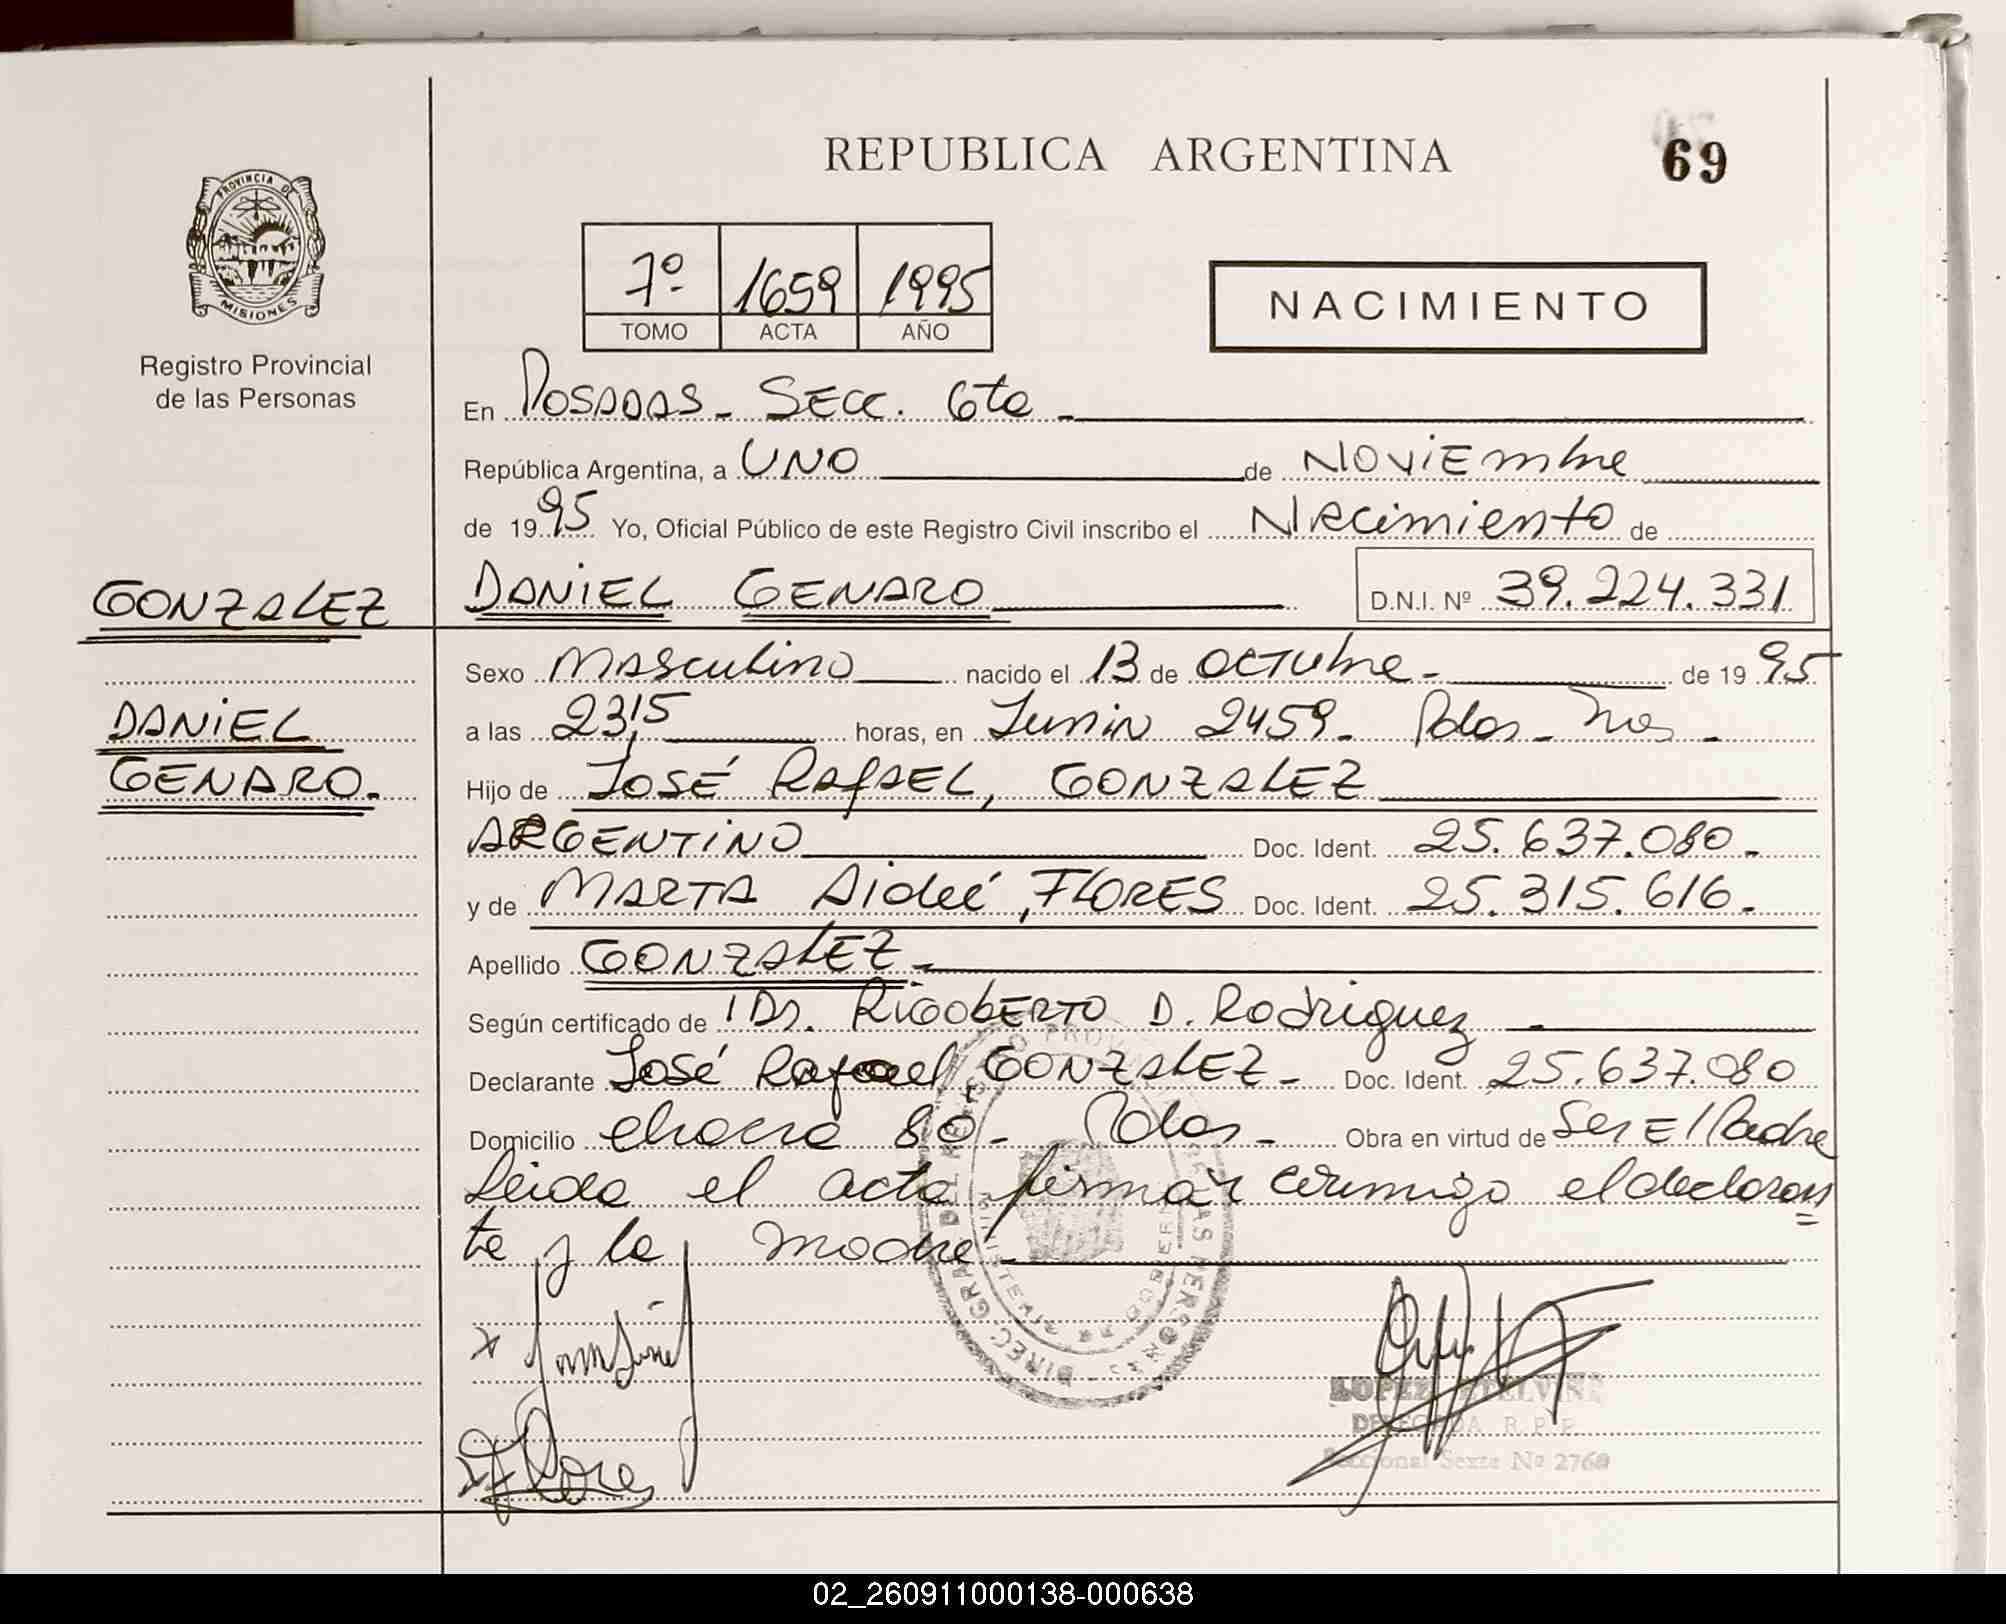 REPUBLICA ARGENTINA
69
PROVINCIA DE
MISIONES
Registro Provincial
de las Personas
7º 1659 1995
TOMO ACTA AÑO
NACIMIENTO
En POSADAS - SECC. 6ta -
República Argentina, a UNO de NOViEmbre
de 1995 Yo, Oficial Público de este Registro Civil inscribo el Nacimiento de
GONZALEZ
DANiEL GENARO D.N.I. Nº 39.224.331
Sexo Masculino nacido el 13 de OCTUbre - de 1995
DANiEL
a las 23,15 horas, en Junin 2459 - Pdas - Mnes -
GENARO.
Hijo de JOSÉ RAfAEL, GONZALEZ
ARGENTiNO Doc. Ident. 25.637.080 -
y de MARTA Aideé, FLORES Doc. Ident. 25.315.616 -
Apellido GONZALEZ -
Según certificado de Dr. RIGObERTO D. Rodriguez -
Declarante José Rafael GONZALEZ - Doc. Ident. 25.637.080
Domicilio chacra 80 - Pdas - Obra en virtud de Ser El Padre
Leida el acta firman conmigo el declaran
te y la madre
x
x Flores
LOPEZ ETELVINA
DELEGADA R.P.P.
Seccional Sexta Nº 2760
02_260911000138-000638